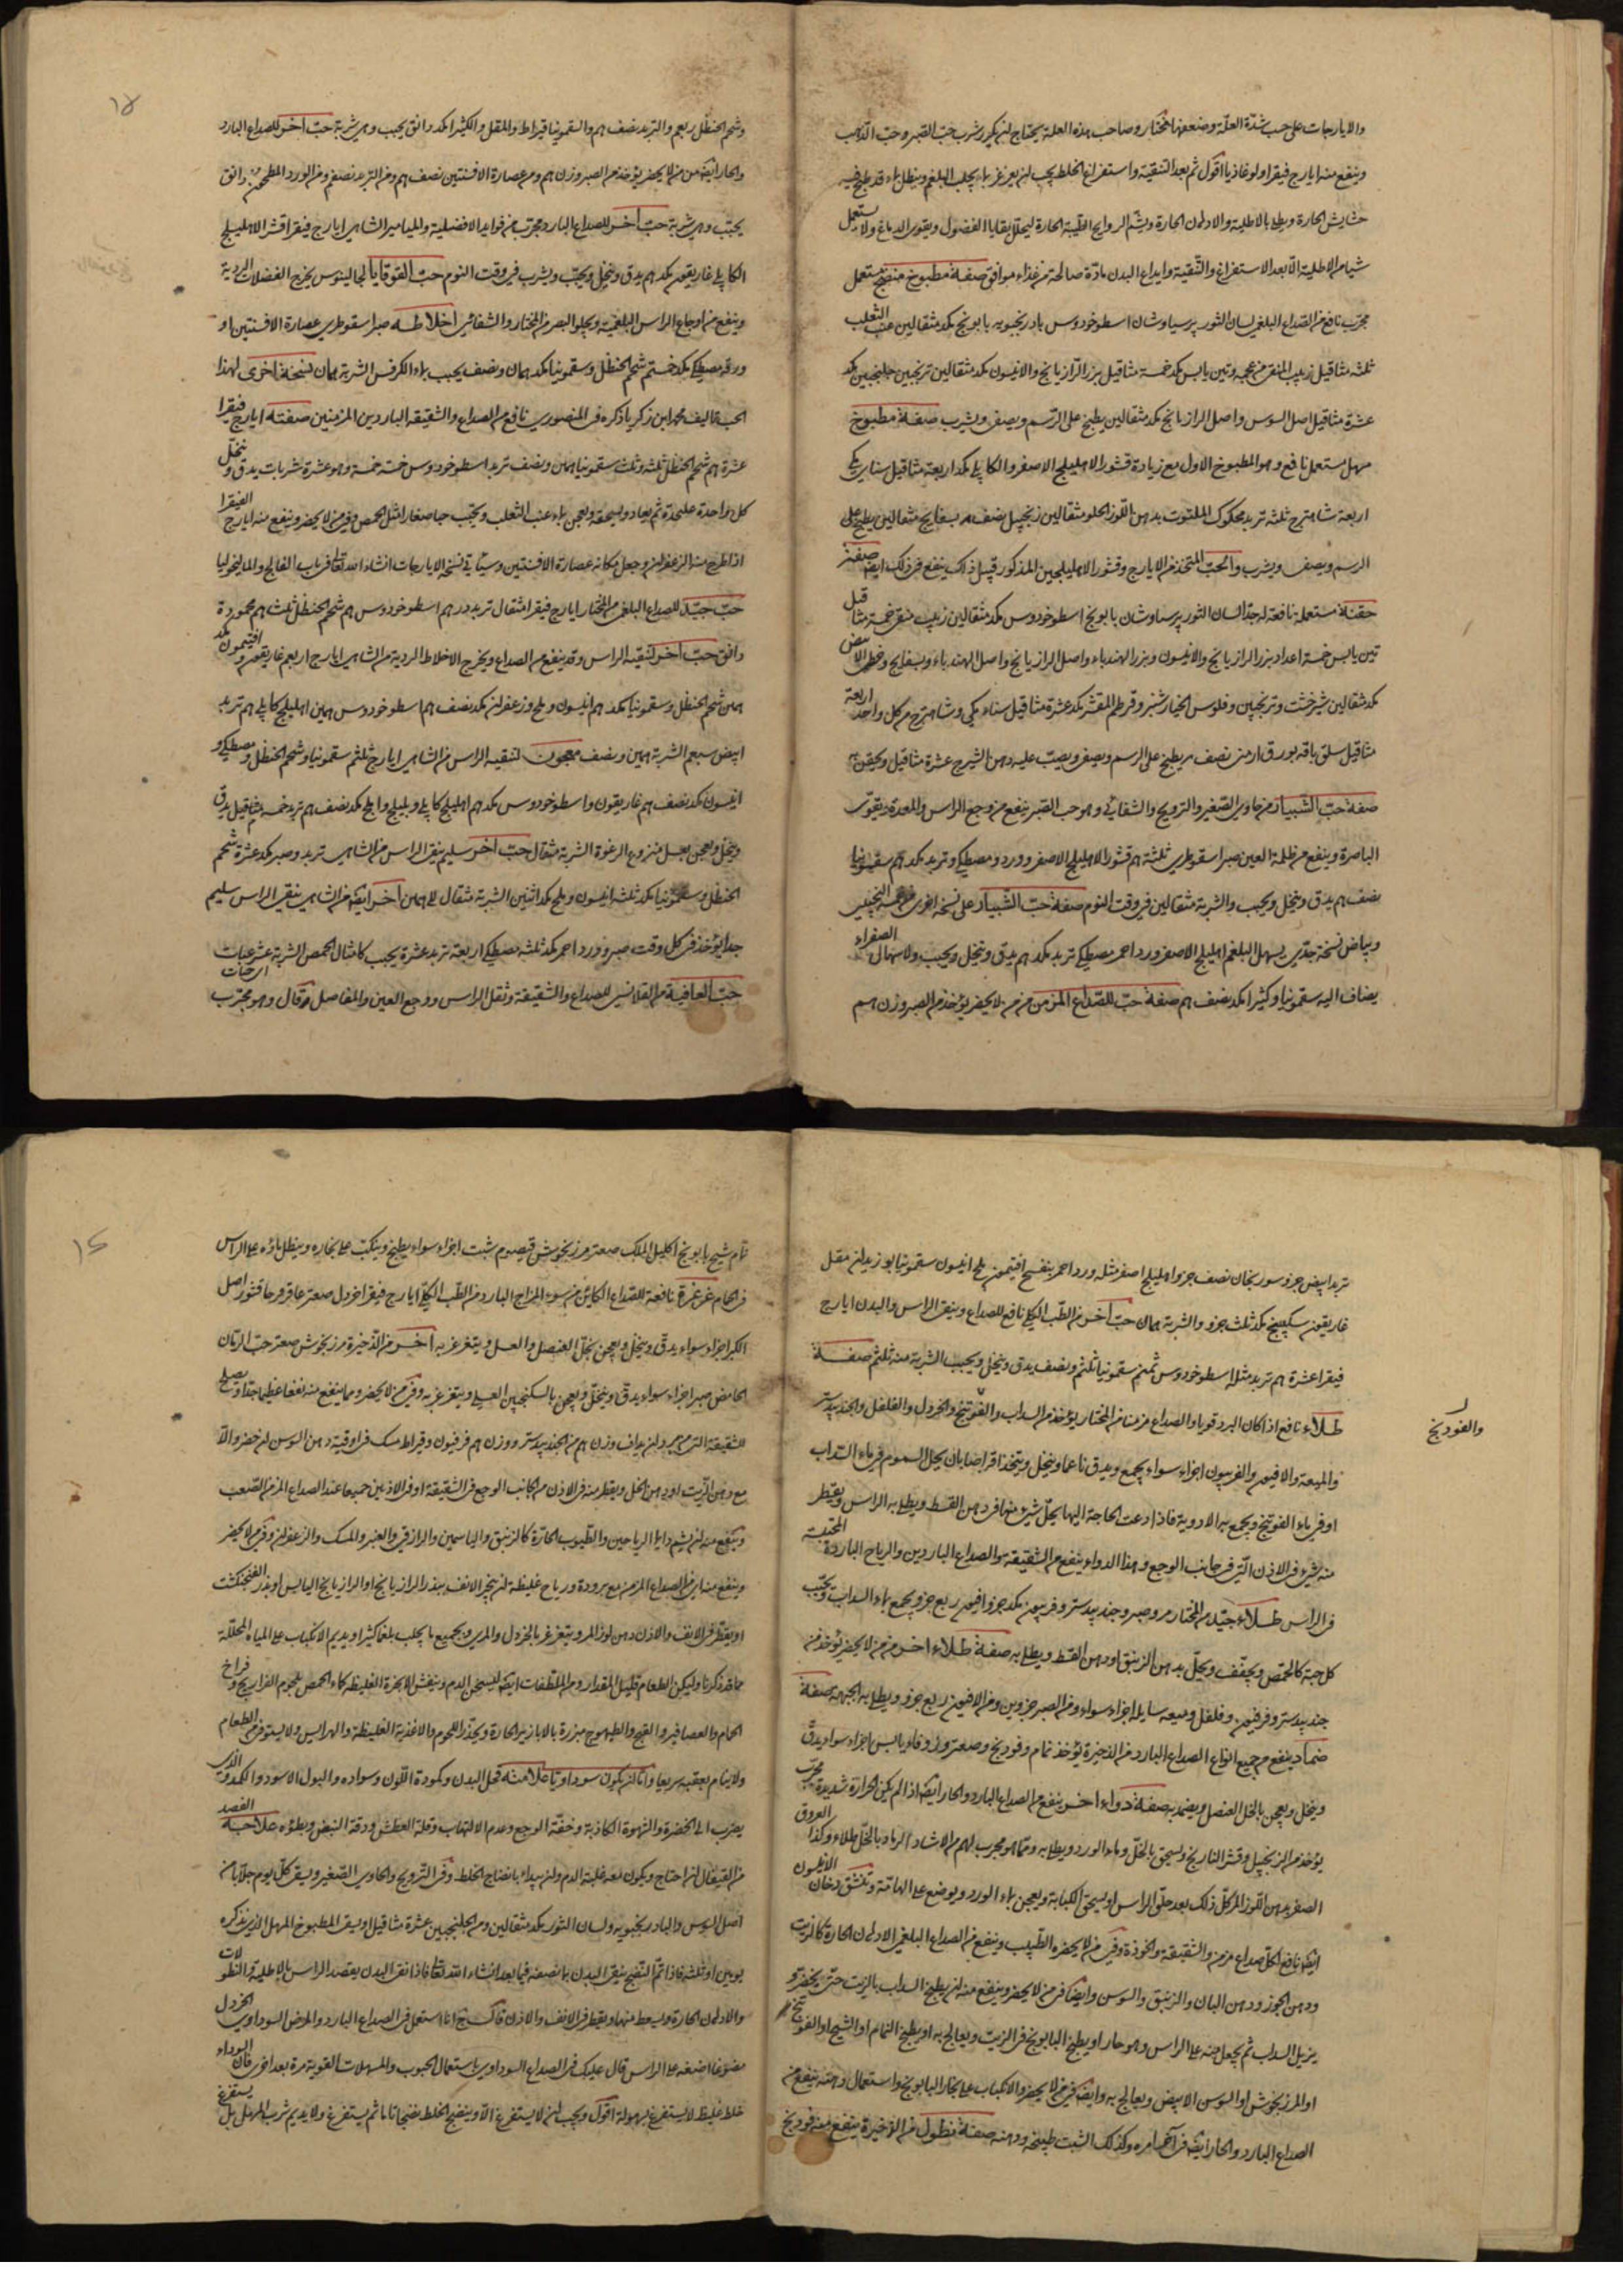 والايارجات على حسب شدة العلة وضعفها فتختار وصاحب هذه العلة يحتاج لن يكرر شرب حب الصبر وحب الذهب
وينفع منه ايارج فيقرا ولوغاذيا اقول ثم بعد التنقية واستفراغ الخلط يجب لن يغرغر بماء يجلب البلغم وينطل بماء قد طبخ فيه
حشايش الحارة ويطلى بالاطلية والادهان الحارة ويشم الروايح الطيبة الحارة ليحلل بقايا الفضول ويقوى الدماغ ولا يستعمل
شيا من الاطلية الا بعد الاستفراغ والتنقية وايداع البدن مادة صالحة من غذاء موافق صفة مطبوخ منضج مستعمل
مجرب نافع من الصداع البلغمي لسان الثور برسياوشان اسطوخودوس بادرنجبويه بابونج مكد مثقالين عنب الثعلب
ثلثه مثاقيل زبيب المنقى من عجمه وتين يابس مكد خمسة مثاقيل بزر الرازيانج والانيسون مكد مثقالين ترنجبين جلنجبين مكد
عشرة مثاقيل اصل السوس واصل الرازيانج مكد مثقالين يطبخ على الرسم ويصفى ويشرب صفة مطبوخ
مسهل مستعمل نافع وهو المطبوخ الاول مع زيادة قشور الاهليلج الاصفر والكابلي مكد اربعة مثاقيل سنا مكي
اربعة شاهترج ثلثه تربد محكوك الملتوت بدهن اللوز الحلو مثقالين زنجبيل نصف هم بسفايج مثقالين يطبخ على
الرسم ويصفى ويشرب والحب المتخذ من الايارج وقشور الاهليلجين المذكور قبيل ذلك ينفع في ذلك ايضا صفة
حقنة مستعملة نافعة له جدا لسان الثور برسياوشان بابونج اسطوخودوس مكد مثقالين زبيب منقى خمسة مثاقيل
تين يابس خمسة اعداد بزر الرازيانج والانيسون وبزر الهندباء واصل الرازيانج واصل الهندباء وبسفايج وخطمى الابيض
مكد مثقالين شيرخشت وترنجبين وفلوس الخيارشنبر وقرطم المقشر مكد عشرة مثاقيل سناء مكي وشاهترج من كل واحد اربعة
مثاقيل سلق باقه بورق ارمنى نصف هم يطبخ على الرسم ويصفى ويصب عليه دهن الشيرج عشرة مثاقيل ويحقن به
صفة حب الشبيار من حاوى الصغير والترويح والشفائي وهو حب الصبر ينفع من وجع الراس والمعدة ويقوى
الباصرة وينفع من ظلمة العين صبر اسقوطرى ثلثة هم قشور الاهليلج الاصفر وورد ومصطكى وتربد مكد هم سقمونيا
نصف هم يدق وينخل ويحبب والشربة مثقالين في وقت النوم صفة حب الشبيار على نسخة اخرى
وبياض نسخة جدى يسهل البلغم اهليلج الاصفر ورد احمر مصطكى تربد مكد هم يدق وينخل ويحبب ولاسهال الصفراء
يضاف اليه سقمونيا وكثيرا مكد نصف هم صفة حب للصداع المزمن من من لا يحضر يؤخذ من الصبر وزن هم
وشحم الحنظل ربعم والتربد نصف هم والسقمونيا قيراط والمقل والكثيرا مكد دانق يحبب وهي شربة حب اخر للصداع البارد
والحار ايضا من من لا يحضر يؤخذ من الصبر وزن هم ومن عصارة الافسنتين نصف هم ومن التربد نصفم ومن الورد المطحون دانق
يحبب وهي شربة حب اخر للصداع البارد مجرب من فوايد الافضلية والميامير الشاهى ايارج فيقرا قشر الاهليلج
الكابلي غاريقون مكد هم يدق وينخل ويحبب ويشرب في وقت النوم حب القوقايا لجالينوس يخرج الفضلات الردية
وينفع من اوجاع الراس البلغمية ويجلو البصر من المختار والشفائى اخلاطه صبر اسقوطرى عصارة الافسنتين او
ورقه مصطكى مكد خمستم شحم الحنظل وسقمونيا مكد همان ونصف يحبب بماء الكرفس الشربة همان نسخة اخرى لهذا
الحب تاليف محمد ابن زكريا ذكره فى المنصوري نافع من الصداع والشقيقه الباردين المزمنين صفته ايارج فيقرا
عشرة هم شحم الحنظل ثلثه وثلث سقمونيا همين ونصف تربد اسطوخودوس خمسه خمسة وهو عشرة شربات يدق وينخل
كل واحدة عليحدة ثم يعاد ويسحقه ويعجن بماء عنب الثعلب ويحبب حبا صغارا مثل الحمص وفي من لا يحضر وينفع منه ايارج الفيقرا
اذا طرح منه الزعفران وجعل مكانه عصارة الافسنتين وسياتى نسخة الايارجات انشاء الله تعالى فى باب الفالج والماليخوليا
حب جيد للصداع البلغمى من المختار ايارج فيقرا مثقال تربد درهم اسطوخودوس هم شحم الحنظل ثلث هم محمودة
دانق حب اخر لتنقية الراس وقد ينفع من الصداع ويخرج الاخلاط الردية من الشاهى ايارج اربعم غاريقون وافتيمون مكد
همين شحم الحنظل وسقمونيا مكد هم انيسون وملح وزعفران مكد نصف هم اسطوخودوس همين اهليلج كابلى هم تربد
ابيض سبعم الشربة همين ونصف معجون لتنقيه الراس من الشاهى ايارج ثلثم سقمونيا وشحم الحنظل ومصطكى و
انيسون مكد نصف هم غاريقون واسطوخودوس مكد هم اهليلج كابلى وبليلج واملج مكد نصف هم تربد خمسه مثاقيل يدق
وينخل ويعجن بعسل منزوع الرغوة الشربة مثقال حب اخر سليم ينقى الراس من الشاهى تربد وصبر مكد عشرة شحم
الحنظل وسقمونيا مكد ثلثه انيسون وملح مكد اثنين الشربة مثقال الى همين اخر ايضا من الشاهى ينقى الراس سليم
جدا يؤخذ في كل وقت صبر وورد احمر مكد ثلثه مصطكى اربعة تربد عشرة يحبب كامثال الحمص الشربة عشر حبات
حب العافية من القلانسى للصداع والشقيقة وثقل الراس ووجع العين والمفاصل قال وهو مجرب
تربد ابيض جزو سورنجان نصف جزو اهليلج اصفر مثله ورد احمر بنفسج افتيمون ملح انيسون سقمونيا بوزيدان مقل
غاريقون سكبينج مكد ثلث جزو والشربة همان حب اخر من الطب الكلى نافع للصداع وينقى الراس والبدن ايارج
فيقرا عشرة هم تربد مثله اسطوخودوس ثمنم سقمونيا ثلثم ونصف يدق وينخل ويحبب الشربة منه ثلثم صفة
طلاء نافع اذا كان البرد قويا والصداع مزمنا من المختار يؤخذ من السداب والفوتنج والخردل والفلفل والجندبيدستر
والفودنج
والميعة والافيون والفربيون اجزاء سواء يجمع ويدق ناعما وينخل ويتخذ اقراصا بان يحل الصموم في ماء السداب
او في ماء الفوتنج ويجمع به الادوية فاذا دعت الحاجة اليها يحل شيء منها في دهن القسط ويطلى به الراس ويقطر
منه شيء في الاذن التى في جانب الوجع وهذا الدواء ينفع من الشقيقة والصداع الباردين والرياح الباردة المحتقنة
في الراس طلاء جيد من المختار مر وصبر وجندبيدستر وفربيون مكد جزو افيون ربع جزو يجمع بماء السداب ويحبب
كل حبة كالحمص ويجفف ويحل بدهن الزنبق او دهن القسط ويطلى به صفة طلاء اخر من من لا يحضر يؤخذ من
جندبيدستر وفربيون وفلفل وميعه سايله اجزاء سواء ومن الصبر جزوين ومن الافيون ربع جزو ويطلى به الجبهة صفة
ضماد ينفع من جميع انواع الصداع البارد من الذخيرة يؤخذ نمام وفودنج وصعتر وزوفا يابس اجزاء سواء يدق
وينخل ويعجن بالخل العنصل ويضمد به صفة دواء اخر ينفع من الصداع البارد والحار ايضا اذا لم يكن الحرارة شديدة مجرب
يؤخذ من الزنجبيل وقشر النارنج ويسحق بالخل وماء الورد ويطلى به ومما هو مجرب لهم من الارشاد الرماد بالخل طلاء وكذا العروق
الصفر بدهن اللوز المر كل ذلك بعد حلق الراس او يسحق الكبابة ويعجن بماء الورد ويوضع على الهامة وتنشق دخان الانيسون
ايضا نافع لكل صداع مزمن والشقيقة والخوذة وفي من لا يحضره الطبيب وينفع من الصداع البلغمي الادهان الحارة كالزيت
ودهن الجوز ودهن البان والزنبق والسوسن وايضا في من لا يحضر وينفع منه لن يطبخ السداب بالزيت حتى يخضر و
يزيل السداب ثم يجعل منه على الراس وهو حار او يطبخ البابونج في الزيت ويعالج به او يطبخ النمام او الشيح او الفوتنج
او المرزنجوش او السوسن الابيض ويعالج به وايضا في من لا يحضر والانكباب على بخار البابونج واستعمال دهنه ينفع من
الصداع البارد والحار ايضا في آخر امره وكذلك الشبت طبيخه ودهنه صفة نطول من الذخيرة ينفع منه فودنج
نمام شيح بابونج اكليل الملك صعتر مرزنجوش قيصوم شبت اجزاء سواء يطبخ وينكب على بخاره وينطل بماؤه على الراس
في الحمام غرغرة نافعة للصداع الكائن من سوء المزاج البارد من الطب الكلى ايارج فيقرا خردل صعتر عاقرقرحا قشور اصل
الكبر اجزاء سواء يدق وينخل ويعجن بخل العنصل والعسل ويتغرغر به اخر من الذخيرة مرزنجوش صعتر حب الرمان
الحامض صبر اجزاء سواء يدق وينخل ويعجن بالسكنجبين العسلي ويتغرغر به وفي من لا يحضر ومما ينفع منه نفعا عظيما جدا ويصلح
للشقيقة التى من برد لن يداف وزن هم من الجندبيدستر ووزن هم فرفيون وقيراط مسك في اوقية دهن السوسن لن حضر والا
مع دهن الزيت او دهن الخل ويقطر منه في الاذن من الجانب الوجع في الشقيقة او في الاذنين جميعا عند الصداع المزمن الصعب
وينفع منه لن يشم دايما الرياحين والطيوب الحارة كالزنبق والياسمين والرازقى والعنبر والمسك والزعفران وفي من لا يحضر
وينفع منه اي من الصداع المزمن مع برودة ورياح غليظة لن يبخر الانف ببذر الرازيانج او الرازيانج اليابس او بذر الفنجنكشت
او يقطر في الانف والاذن دهن لوز المر ويتغرغر بالخردل والمري وبجميع ما يجلب بلغما كثيرا ويديم الانكباب على المياه المحللة
مما قد ذكرنا وليكن الطعام قليل المقدار ومن الملطفات ايضا ليسخن الدم وينفش الابخرة الغليظة كماء الحمص بلحوم الفراريج وفراخ
الحمام والعصافير والقبج والطيهوج مبزرة بالابازير الحارة ويحذر اللحوم والاغذية الغليظة والهرايس ولا يستوفى من الطعام
ولا ينام بعقبه سريعا واما لن يكون سوداويا علامته قحل البدن وكمودة اللون وسواده والبول الاسود والكمد الذى
يضرب الى الخضرة والشهوة الكاذبة وخفة الوجع وعدم الالتهاب وقلة العطش ودقة النبض وبطؤه علاجه الفصد
من القيفال لن احتاج ويكون معه غلبة الدم ولن يبداء بانضاج الخلط وفي الترويح والحاوى الصغير ويسقى كل يوم جلابا من
اصل السوس والبادرنجبويه ولسان الثور مكد مثقالين ومن الجلنجبين عشرة مثاقيل او يسقى المطبوخ المسهل الذى نذكره
يومين او ثلثه فاذا تم النضج ينقى البدن بما نصفه فيما بعد انشاء الله تعالى فاذا نقى البدن يقصد الراس بالاطلية والنطولات
والادهان الحارة ويسعط منها ويقطر في الانف والاذن قال ج انا استعمل في الصداع البارد والمرض السوداوي الخردل
مضوغا اضعه على الراس قال عليك في الصداع السوداوي باستعمال الحبوب والمسهلات القوية مرة بعد اخرى فان السوداء
خلط غليظ لا يستفرغ بسهولة اقول ويجب لن لا يستفرغ الا وينضج الخلط نضجا تاما ثم يستفرغ ولا يديم شرب المسهل بل يستفرغ